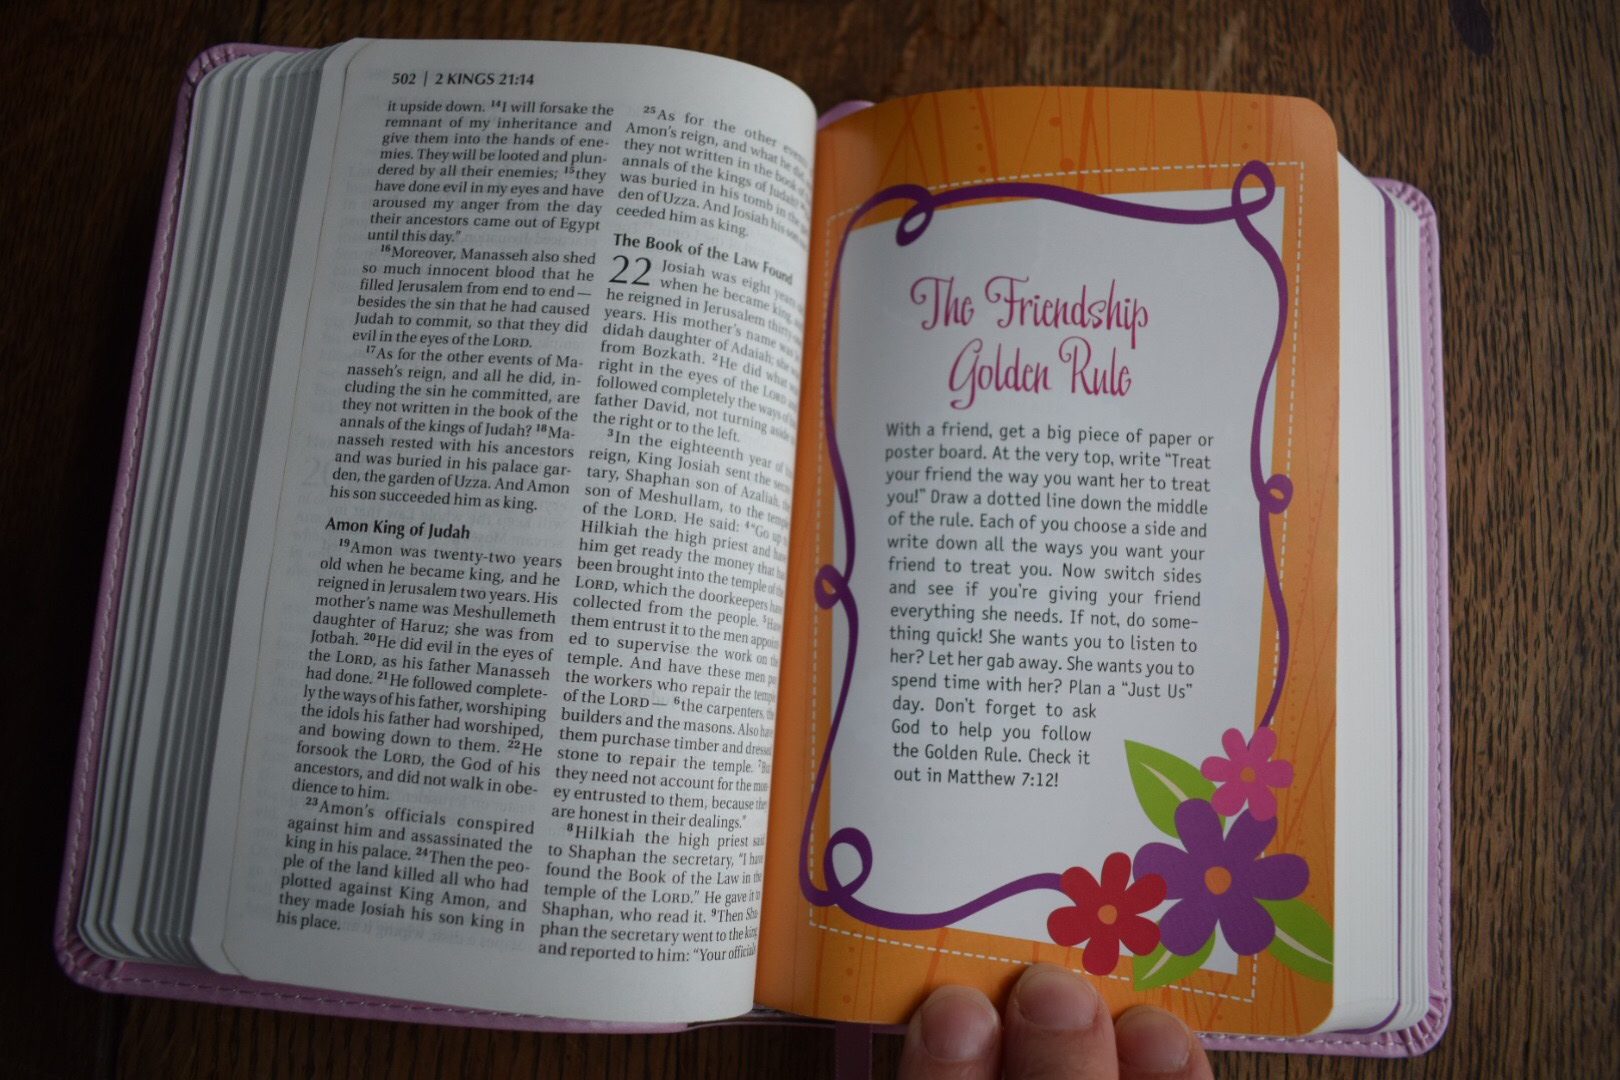 502 | 2 KINGS 21:14
it upside down. 14I will forsake the
remnant of my inheritance and
give them into the hands of ene-
mies. They will be looted and plun-
dered by all their enemies; 15they
have done evil in my eyes and have
aroused my anger from the day
their ancestors came out of Egypt
until this day.”
16Moreover, Manasseh also shed
so much innocent blood that he
filled Jerusalem from end to end—
besides the sin that he had caused
Judah to commit, so that they did
evil in the eyes of the LORD.
17As for the other events of Ma-
nasseh’s reign, and all he did, in-
cluding the sin he committed, are
they not written in the book of the
annals of the kings of Judah? 18Ma-
nasseh rested with his ancestors
and was buried in his palace gar-
den, the garden of Uzza. And Amon
his son succeeded him as king.
Amon King of Judah
19Amon was twenty-two years
old when he became king, and he
reigned in Jerusalem two years. His
mother’s name was Meshullemeth
daughter of Haruz; she was from
Jotbah. 20He did evil in the eyes of
the LORD, as his father Manasseh
had done. 21He followed complete-
ly the ways of his father, worshiping
the idols his father had worshiped,
and bowing down to them. 22He
forsook the LORD, the God of his
ancestors, and did not walk in obe-
dience to him.
23Amon’s officials conspired
against him and assassinated the
king in his palace. 24Then the peo-
ple of the land killed all who had
plotted against King Amon, and
they made Josiah his son king in
his place.
25As for the other events
Amon’s reign, and what he did,
they not written in the book of
annals of the kings of Judah?
was buried in his tomb in the
den of Uzza. And Josiah his son
ceeded him as king.
The Book of the Law Found
22 Josiah was eight years
when he became king,
he reigned in Jerusalem thirty-
years. His mother’s name was
didah daughter of Adaiah; she
from Bozkath. 2He did what
right in the eyes of the LORD
followed completely the ways of
father David, not turning aside
the right or to the left.
3In the eighteenth year of
reign, King Josiah sent the
tary, Shaphan son of Azaliah, the
son of Meshullam, to the temple
of the LORD. He said: 4“Go up
Hilkiah the high priest and have
him get ready the money that has
been brought into the temple of the
LORD, which the doorkeepers have
collected from the people. 5Have
them entrust it to the men appoint-
ed to supervise the work on the
temple. And have these men pay
the workers who repair the temple
of the LORD— 6the carpenters, the
builders and the masons. Also have
them purchase timber and dressed
stone to repair the temple. 7But
they need not account for the mon-
ey entrusted to them, because they
are honest in their dealings.”
8Hilkiah the high priest said
to Shaphan the secretary, “I have
found the Book of the Law in the
temple of the LORD.” He gave it to
Shaphan, who read it. 9Then Sha-
phan the secretary went to the king
and reported to him: “Your officials
The Friendship
Golden Rule
With a friend, get a big piece of paper or
poster board. At the very top, write “Treat
your friend the way you want her to treat
you!” Draw a dotted line down the middle
of the rule. Each of you choose a side and
write down all the ways you want your
friend to treat you. Now switch sides
and see if you’re giving your friend
everything she needs. If not, do some-
thing quick! She wants you to listen to
her? Let her gab away. She wants you to
spend time with her? Plan a “Just Us”
day. Don’t forget to ask
God to help you follow
the Golden Rule. Check it
out in Matthew 7:12!